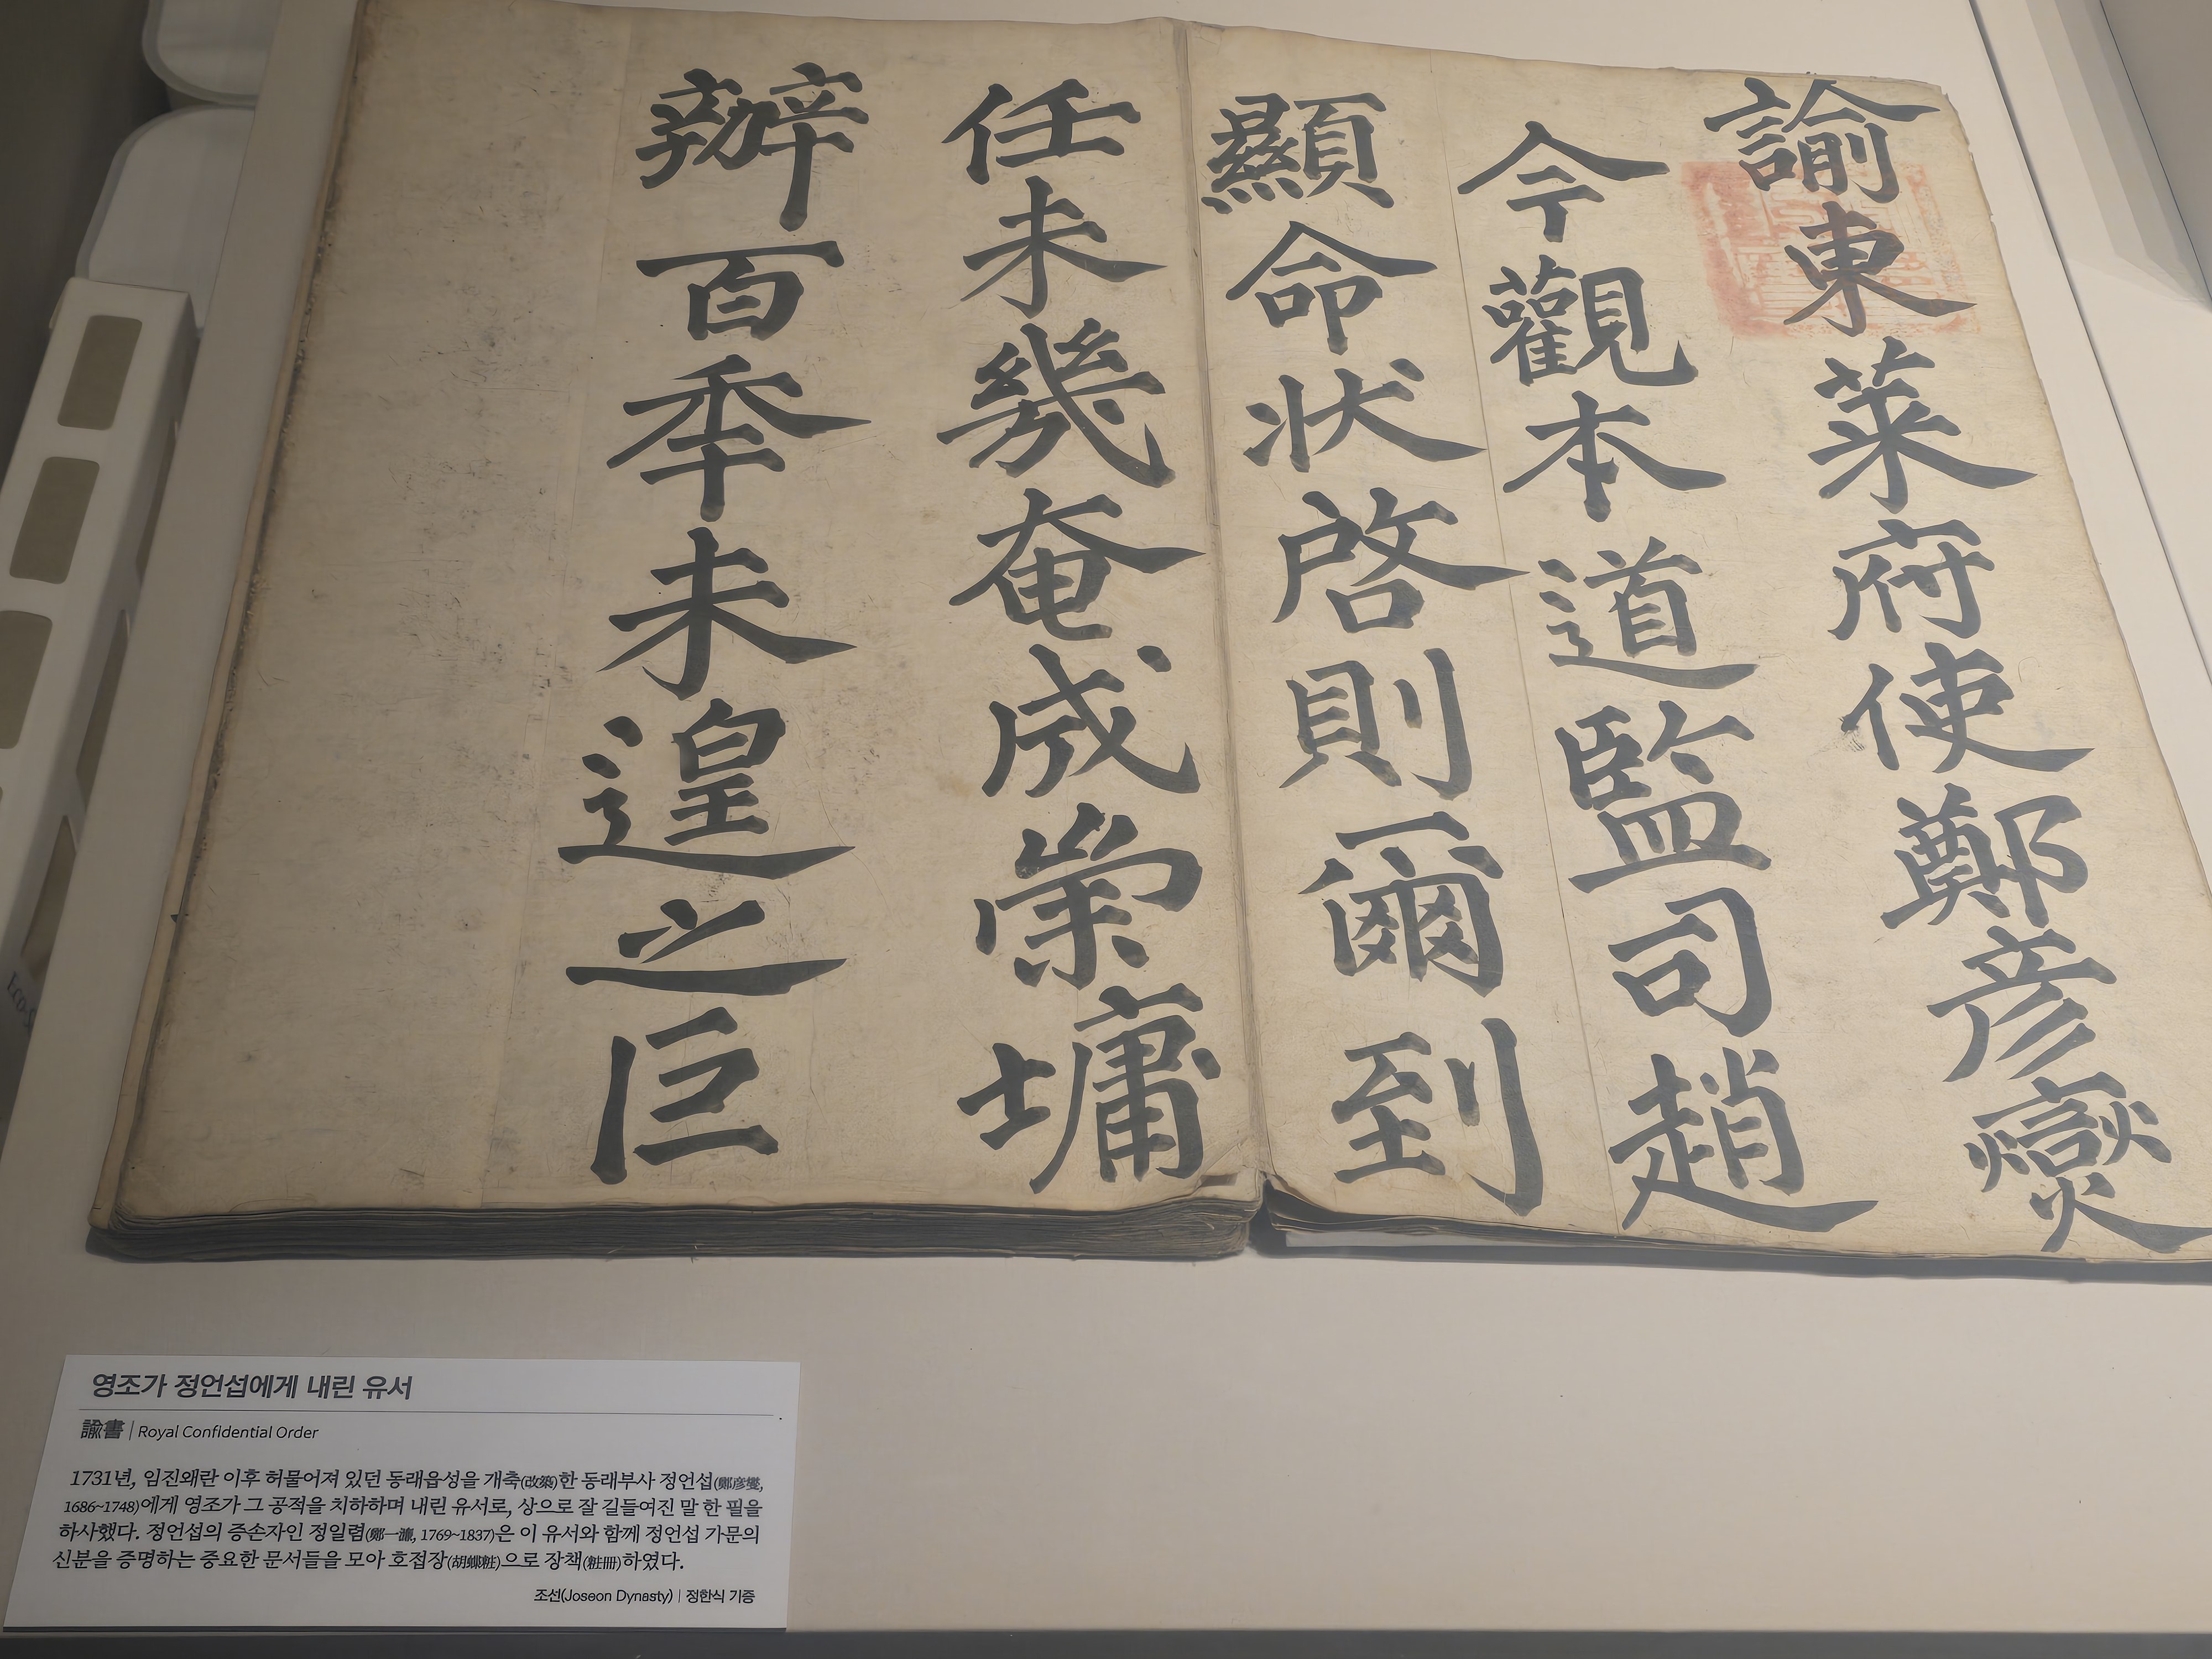 諭東萊府使鄭彦燮
今觀本道監司趙
顯命狀啓則爾到
任未幾奄成崇墉
辦百年未遑之巨
영조가 정언섭에게 내린 유서
諭書 | Royal Confidential Order
1731년, 임진왜란 이후 허물어져 있던 동래읍성을 개축(改築)한 동래부사 정언섭(鄭彦燮,
1686~1748)에게 영조가 그 공적을 치하하며 내린 유서로, 상으로 잘 길들여진 말 한 필을
하사했다. 정언섭의 증손자인 정일렴(鄭一濂, 1769~1837)은 이 유서와 함께 정언섭 가문의
신분을 증명하는 중요한 문서들을 모아 호접장(胡蝶粧)으로 장책(粧冊)하였다.
조선(Joseon Dynasty) | 정한식 기증